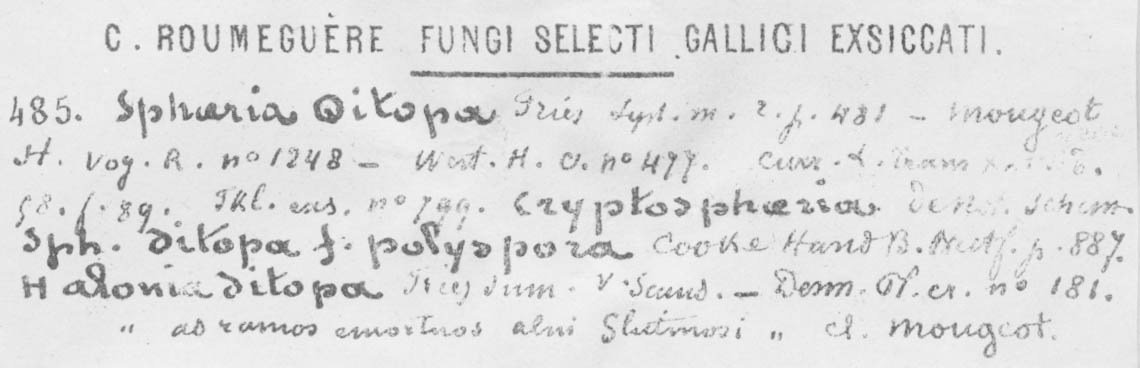 C. ROUMEGUÈRE FUNGI SELECTI GALLICI EXSICCATI.
485. Sphæria Ditopa Fries Syst. m. 2. p. 481 – Mougeot
St. Vog. R. nº 1248 – West. H. C. nº 477. Curr. L. Trans
58. f. 89. Fkl. exs. nº 799. Cryptosphæria De Not. Schem.
Sph. ditopa f. polyspora Cooke Hand B. p. 887.
Halonia ditopa Fries Sum. V. Scand. – Desm. Pl. cr. nº 181.
„ ad ramos emortuos alni Glutinosi „ cl. Mougeot.